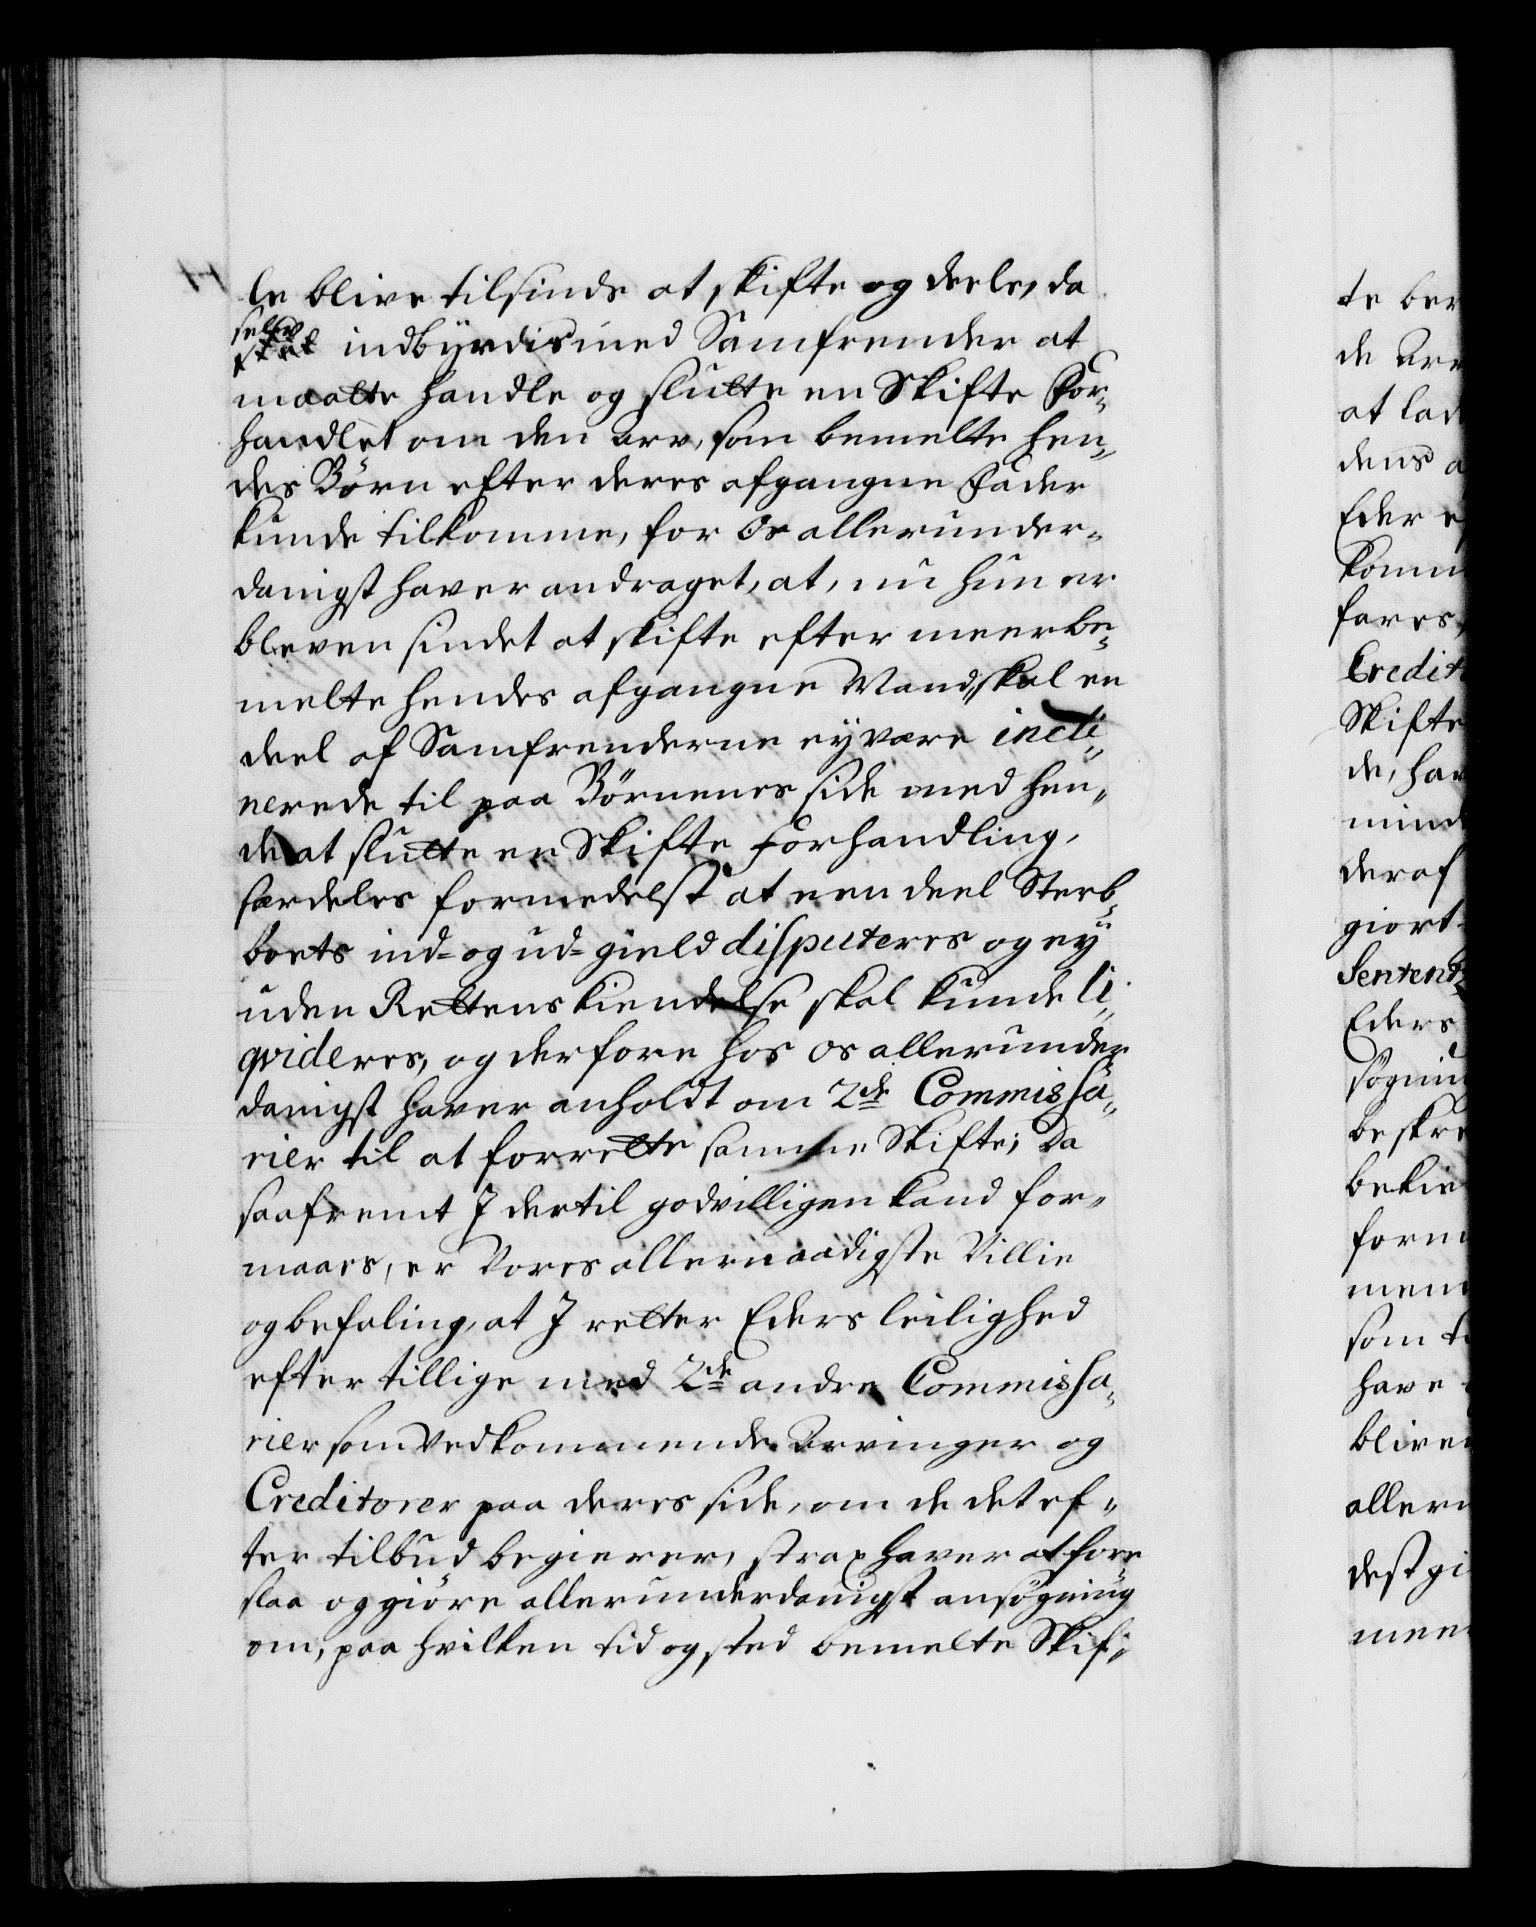 le blive tilsinds at skifte og deele, da
selv
indbyrdis med Samfrender at
maatte handle og slutte en Skifte For-
handlet om den Arv, som bemelte hen-
des Börn efter deres afgangne Fader
kunde tilkomme, for Os allerunder-
danigst haver andraget, at, nu hun er
bleven sindet at skifte efter meerbe-
melte hendes afgangne Mand, skal en
deel af Samfrenderne ey være incli-
nerede til paa Börnenes side med hen-
de at slutte en Skifte Forhandling,
særdeles formedelst at een deel Sterb-
boets ind- og ud-gield disputeres og ey
uden Rettens kiendelse skal kunde li-
qvideres, og derfore hos os allerunder
danigst haver anholdt om 2de Commissa-
rier til at forrette samme Skifte; Da
saafremt J dertil godvilligen kand for-
maaes, er Vores allernaadigste Villie
og befaling, at J retter Eders leilighed
efter tillige med 2de andre Commissa-
rier som Vedkommende Arvinger og
Creditorer paa deres side, om de det ef-
ter tilbud begierer, strax haver at fore
slaa og giöre allerunderdanigst ansögning
om, paa hvilken tid og sted bemelte Skif-
te ber
de Arv
at lad
dens a
Eder e
komm
fares,
Credit
Skifte
de, hav
mind
deraf
giort
Sentent
Eders
sögnin
beskre
bekie
form
men
som t
have
blive
allern
dest gi
meen